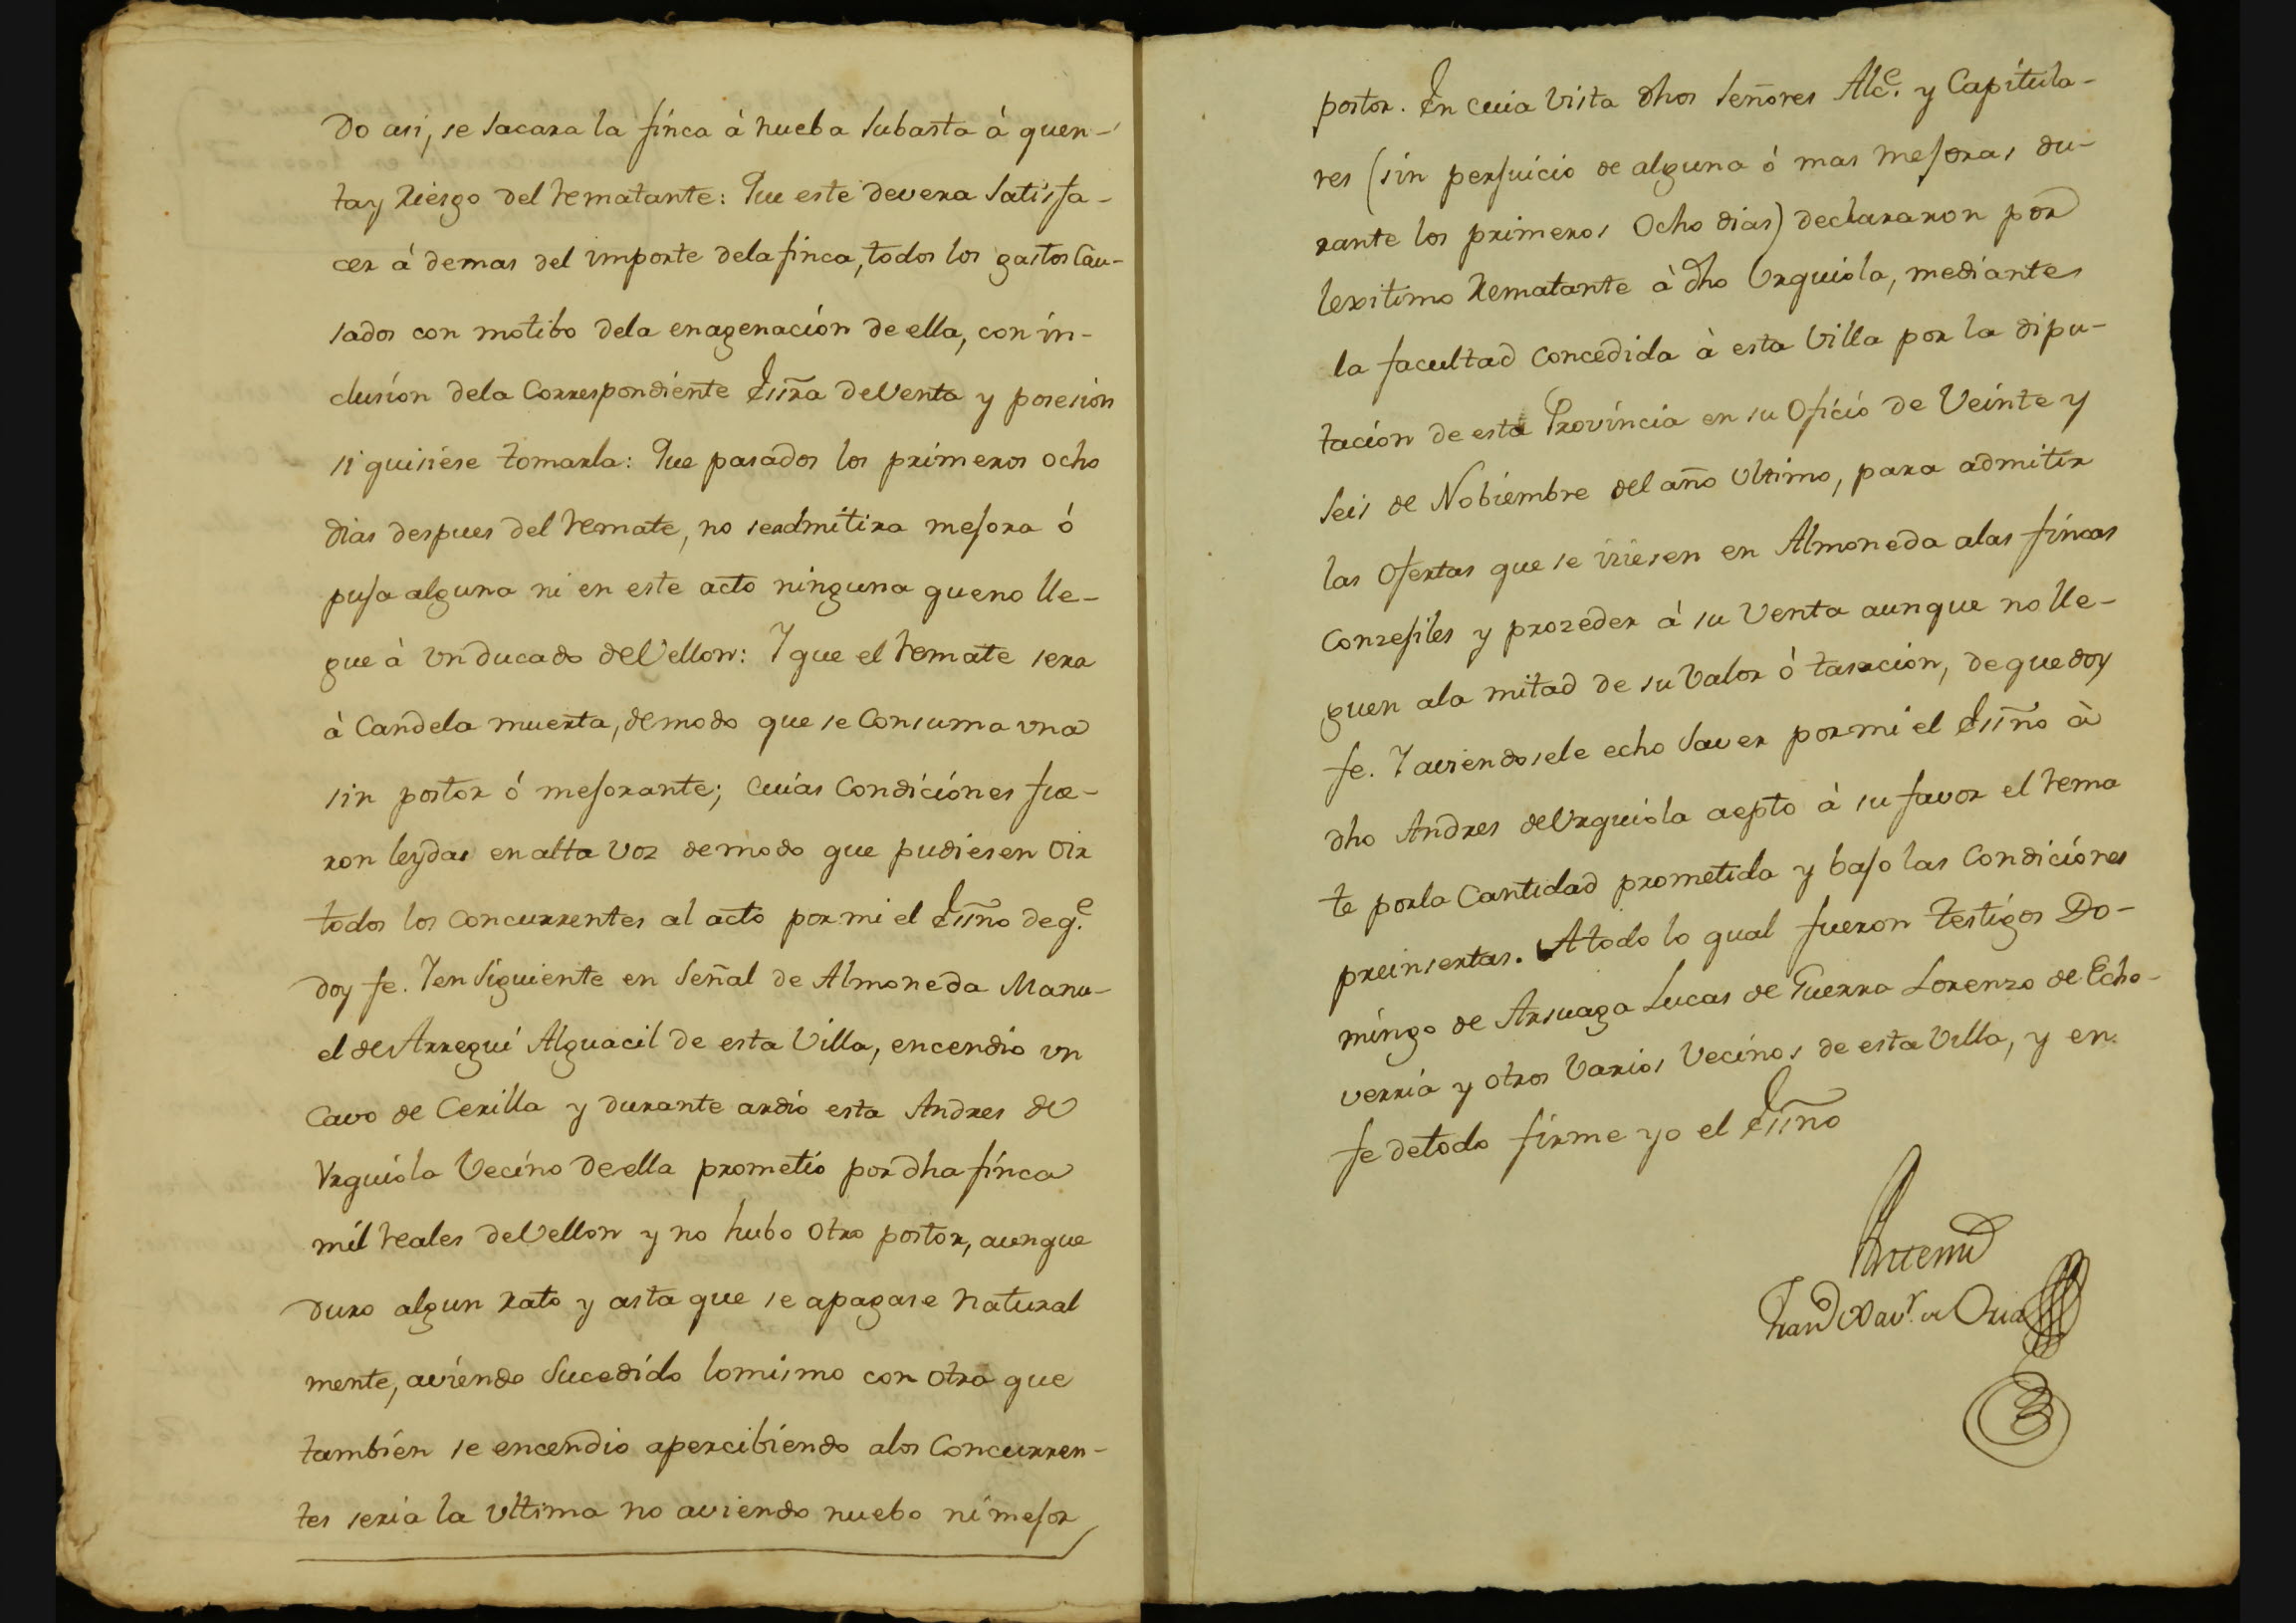 do asi, se sacara la finca à nueba subasta à quen-
ta y Riesgo del rematante: Que este devera satisfa-
cer á demas del importe dela finca, todos los gastos cau-
sados con motibo dela enagenación de ella, con in-
clusíon dela correspondiente Essra. de Venta y posesion
si quisiese tomarla: Que pasados los primeros ocho
dias despues del remate, no seadmitira mejora ó
puja alguna ni en este acto ninguna que no lle-
gue à vn ducado de Vellon: Y que el remate sera
à Candela muerta, demodo que se Consuma vna
sin postor ó mejorante; cuias Condicíones fue-
ron leydas en alta voz demodo que pudiesen oir
todos los concurrentes al acto por mi el Essno. de q.e
doy fe. Y en siguiente en señal de Almoneda Manu-
el de Arregui Alguacil de esta Villa, encendio vn
Cavo de Cerilla y durante ardio esta Andres de
Vrquiola Vecino de ella prometio por dha finca
mil reales de Vellon y no hubo otro postor, aunque
duro algun rato y asta que se apagase natural
mente, aviendo sucedido lo mismo con otra que
tambien se encendio apercibiendo alos Concurren-
tes seria la vltima no aviendo nuebo ni mejor
postor. En cuia vista dhos señores Alc.e y Capitula-
res (sin perjuicio de alguna ó mas mejoras du-
rante los primeros Ocho dias) declararon por
lexitimo Rematante à dho Vrquiola, mediante
la facultad concedida à esta Villa por la dipu-
tacion de esta Província en su Oficio de Veinte y
seis de Nobiembre del año vltimo, para admitir
las Ofertas que se iciesen en Almoneda alas fincas
Conzejiles y prozeder á su Venta aunque no lle-
guen ala mitad de su Valor ó tasacion, de que doy
fe. Y aviendosele echo saver por mi el Essno. à
dho Andres de Vrquiola aepto à su favor el rema
te por la Cantidad prometida y bajo las Condiciones
preinsertas. A todo lo qual fueron testigos Do-
mingo de Arsuaga Lucas de Guerra Lorenzo de Eche-
verria y otros Varios Vecinos de esta Villa, y en
fe de todo firme yo el Essno.
Antemi
Fran.co Xav.r de Oria